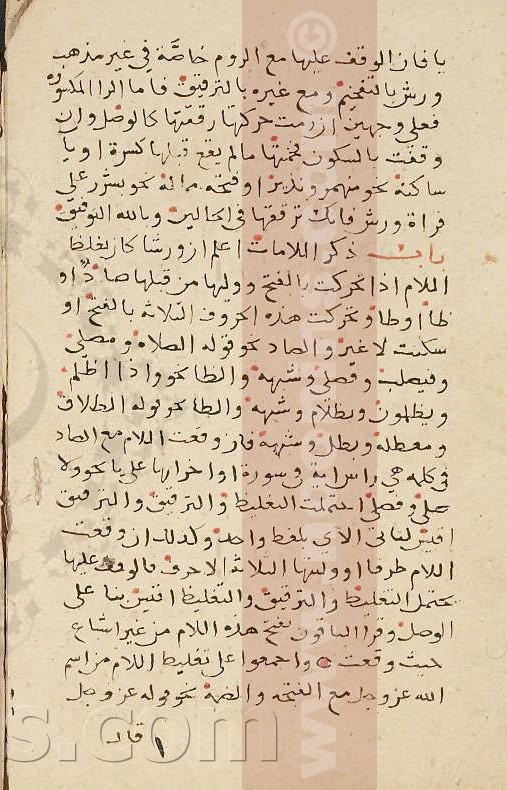 يا فان الوقف عليها مع الروم خاصَّة في غير مذهب
ورش بالتفخيم ومع غيره بالترقيق فاما الرا المكسوره
فعلى وجهين ان رمت حركتها رققتها كالوصل وان
وقفت بالسكون فخمتها مالم يقع قبلها كسرة او يآ
ساكنة نحو منهمر ونذير او فتحه ممالة نحو بشرر على
قراة ورش فانك ترققها في الحالين وبالله التوفيق
باب ذكر اللامات اعلم ان ورشا كان يغلظ
اللام اذا تحركت بالفتح ووليها من قبلها صادٌ او
ظا او طا وتحركت هذه الحروف الثلاثة بالفتح او
سكنت لا غير والصاد نحو قوله الصلاه ومصلى
وفيصلب وفصلى وشبهه والظا نحو واذا اظلم
ويظلمون وبظلام وشبهه والطا نحو قوله الطلاق
ومعطله وبطل وشبهه فان وقعت اللام مع الصاد
في كلمه هي راس اية في سورة اواخر ايها على يا نحو ولا
صلى وفصلى احتملت التغليظ والترقيق والترقيق
اقيس لتاتى الاي بلفظ واحد وكذلك ان وقعت
اللام طرفا ووليتها الثلاثه الاحرف فالوقف عليها
يحتمل التغليظ والترقيق والتغليظ اقيس بنا على
الوصل وقرا الباقون بفتح هذه اللام من غير اشباع
حيث وقعت واجمعوا على تغليظ اللام من اسم
الله عز وجل مع الفتحه والضمة نحو قوله عز وجل
قال
www
s.com